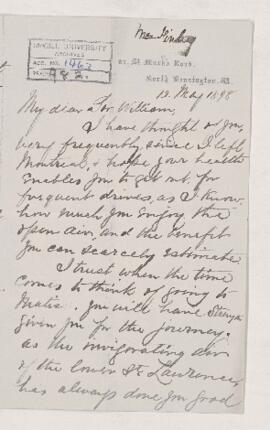 Mrs Lindsay
McGILL UNIVERSITY
ARCHIVES
ACC. NO. 1463
REF. 982.
St Mark's Road,
North Kensington, W.
12 May 1898
My dear Sir William,
I have thought of you
very frequently since I left
Montreal & hope your health
enables you to get out for
frequent drives, as I know
how much you enjoy the
open air, and the benefit
you can scarcely estimate
I trust when the time
comes to think of going to
Metis. you will have strength
given you for the journey.
as the invigorating air
of the lower St. Lawrence
has always done you good